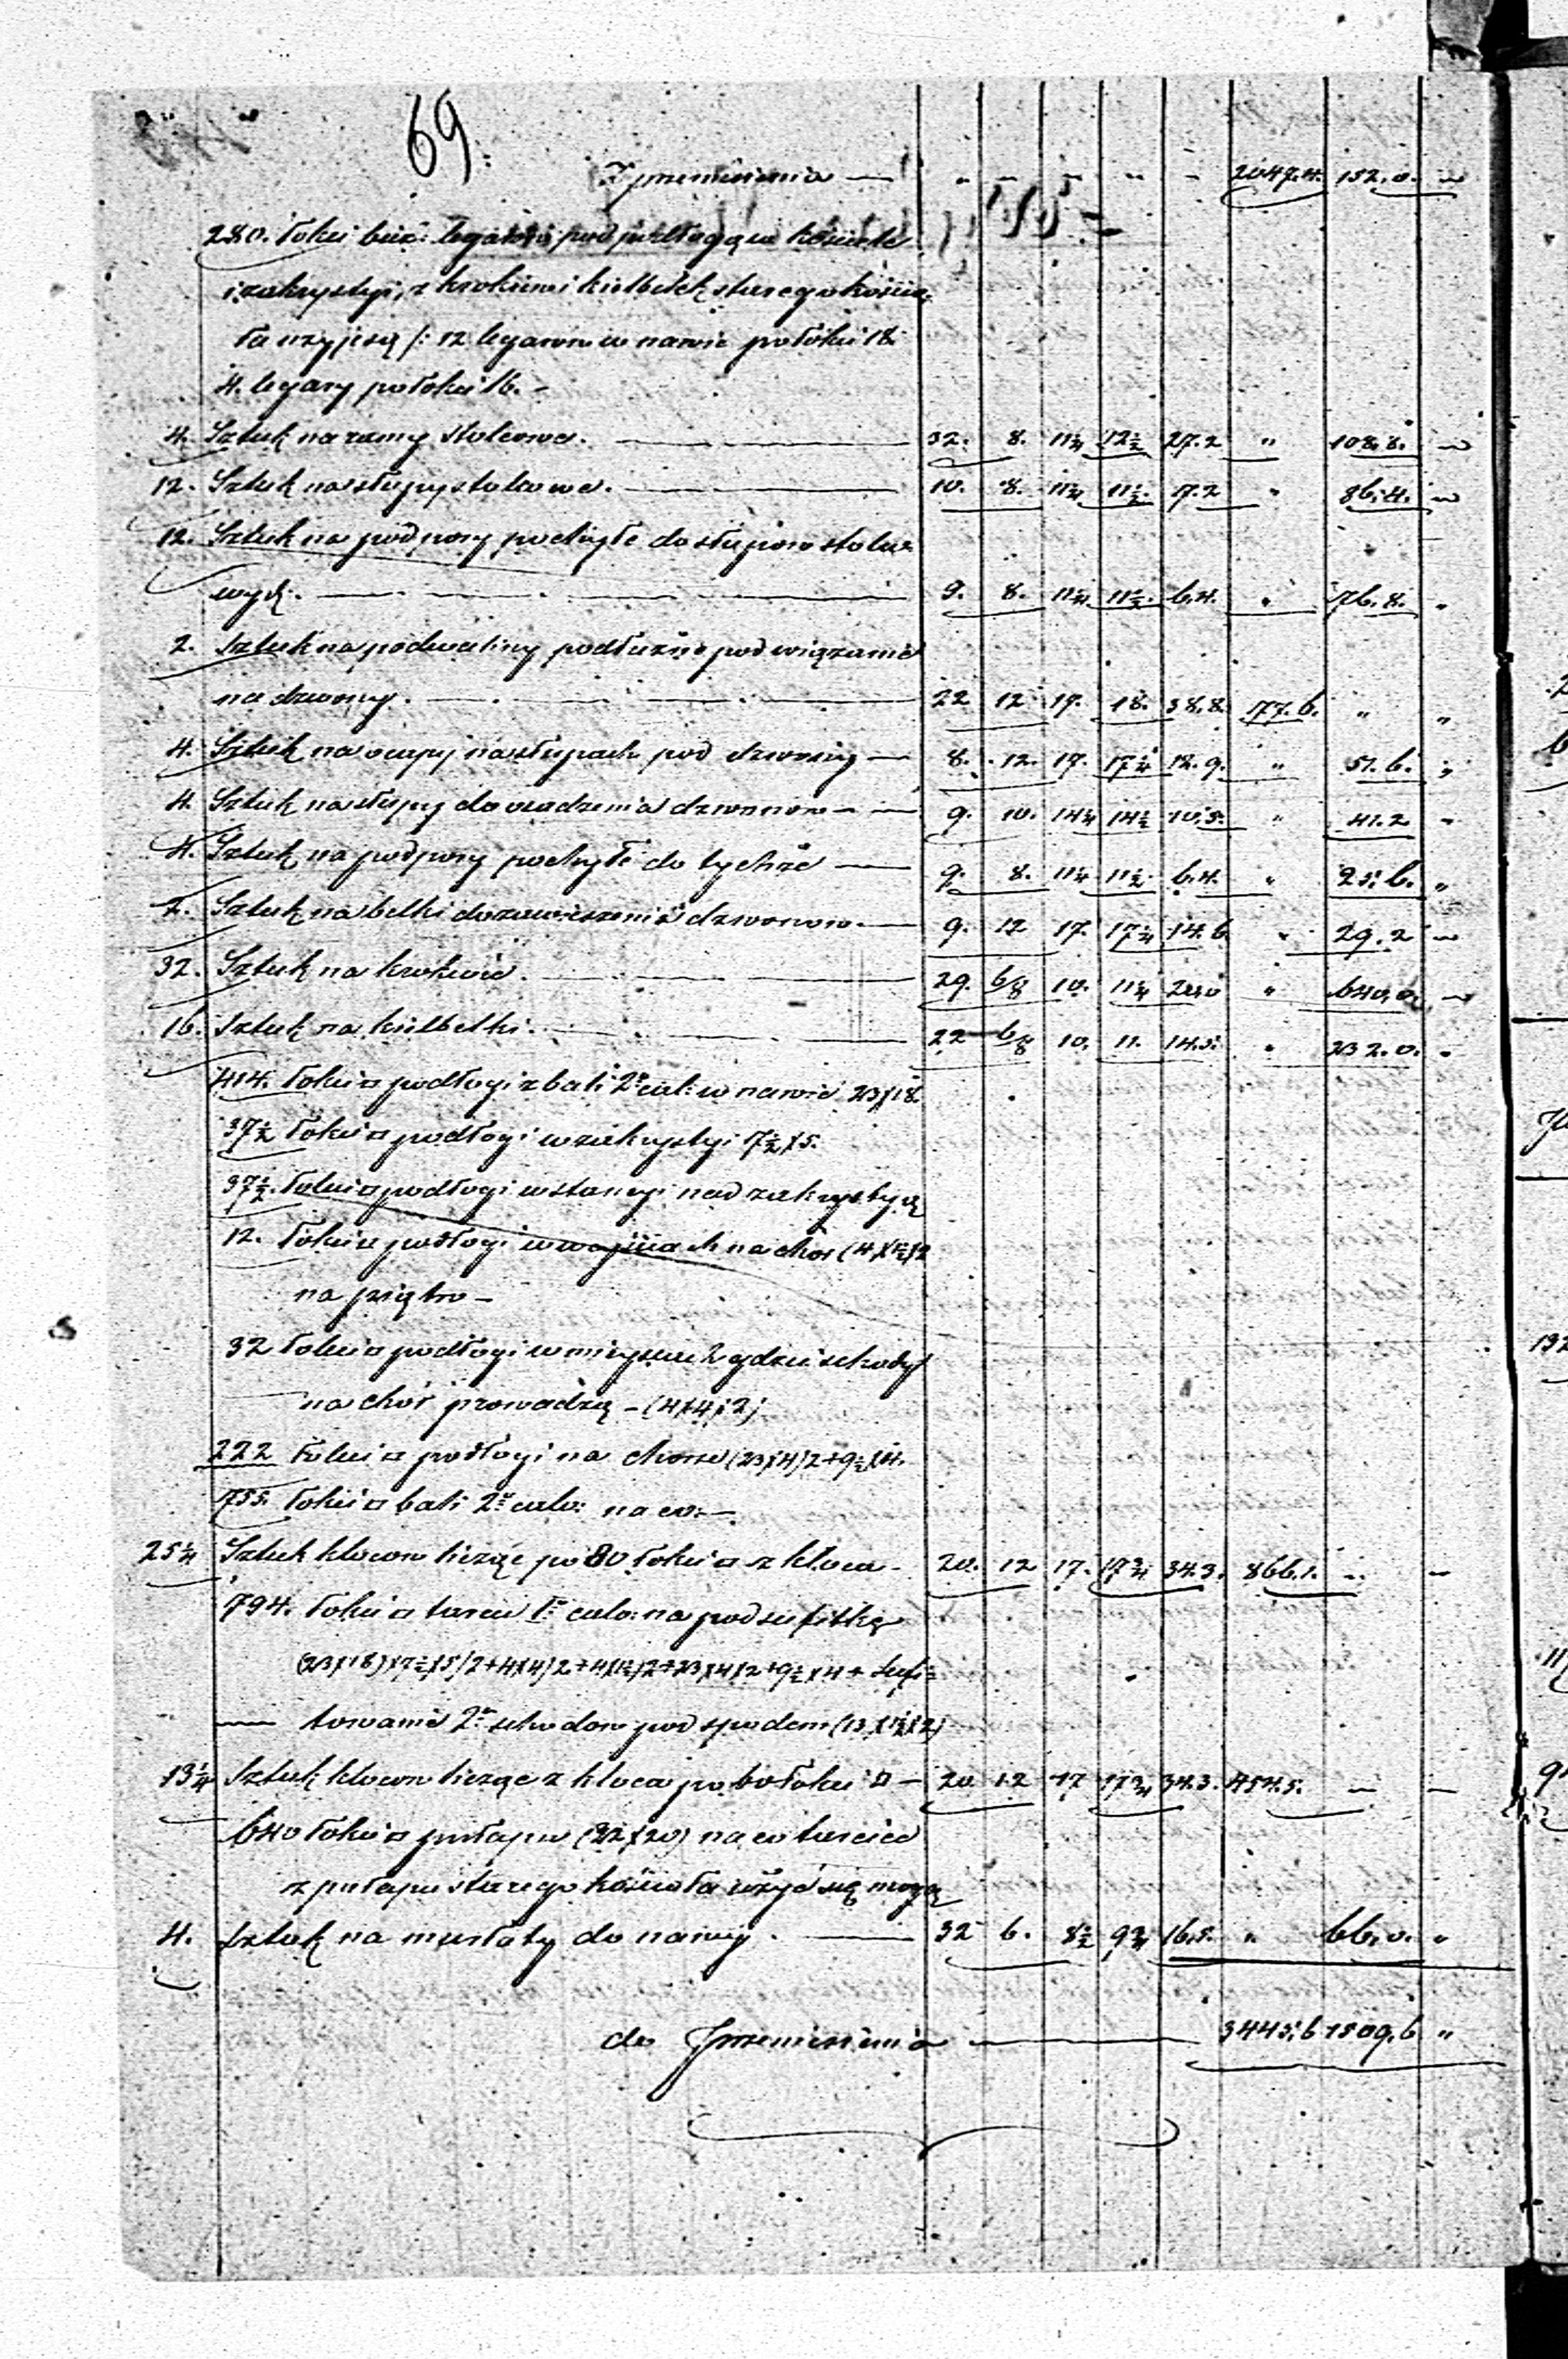 69.
Z przeniesienia — „ – „ „ – 2047.4. 152.0. „
280. łokci bież: legarów pod podłogę w kościele
i zakrystyi, z krokiew i kielbelek starego kościo-
ła użyje się /: 12 legarów w nawie po łokci 18.
4. legary po łokci 16. –
4. Sztuk na ramy stolcowe. — 32. 8. 11¼ 12½ 27.2 „ 108.8. „
12. Sztuk na słupy stolcowe. — 10. 8. 11¼ 11½ 7.2 „ 86.4. „
12. Sztuk na podpory pochyłe do słupów stolco-
wych. — 9. 8. 11¼ 11½ 6.4. „ 76.8. „
2. Sztuk na podwaliny podłużne pod wiązanie
na dzwony. — 22 12 17. 18. 38.8. 77.6. „ „
4. Sztuk na oczepy na słupach pod dzwony — 8. 12. 17. 17¼ 12.9. „ 51.6. „
4. Sztuk na słupy do osadzenia dzwonów — 9. 10. 14¼ 14½ 10.3. „ 41.2 „
4. Sztuk na podpory pochyłe do tychże — 9. 8. 11¼ 11½ 6.4. „ 25.6. „
2. Sztuk na belki do zawieszenia dzwonów. — 9. 12 17. 17¼ 14.6 „ 29.2 „
32. Sztuk na krokwie. — 29. 6/8 10. 11¼ 20.0 „ 640.0. „
16. Sztuk na kielbelki. — 22 6/8 10. 11. 14.5. „ 232.0. „
414. łokci □ podłogi z bali 2" cal: w nawie 23×18.
37½ łokci □ podłogi w zakrystyi 7½×5.
37½. łokci □ podłogi w stancyi nad zakrystyą
12. łokci □ podłogi w wejściach na chór (4×1½)2
na piętro –
32 łokci □ podłogi w miejscu 2 gdzie schody
na chór prowadzą – (4×4)×2)
222 łokci □ podłogi na chórze (23×4)2+9½×4.
755. łokci □ bali 2" calo: na co: —
25¼ Sztuk kloców licząc po 30 łokci □ z kloca – 20. 12 17. 17¾ 34.3. 866.1. „ „
794. łokci □ tarcic 1" calo: na podsufitkę
(23×18)×7½×5/2+4×4)2+4×1½)2+23×4×2+9½×4+ sufi-
— towanie 2" schodów pod spodem (13×1½×2)
13¼ Sztuk kloców licząc z kloca po 60 łokci □ – 20 12 17 17¾ 34.3. 454.5. — —
640 łokci □ pułapu (32×20) na co tarcice
z pułapu starego kościoła użyć się mogą
4. Sztuk na murłaty do nawy. — 32 6. 8½ 9¾ 16.5. „ 66.0. „
do Przeniesienia — 3445.6 1509.6 „